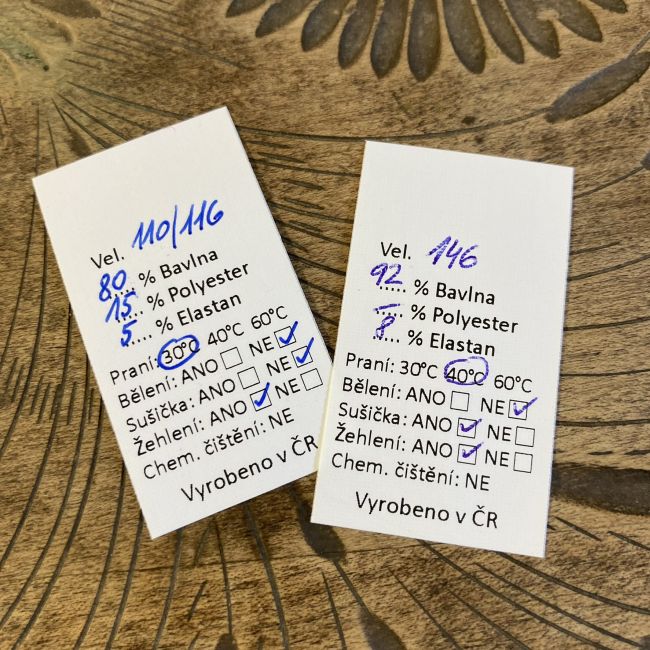 Vel. 110/116
80 % Bavlna
15 % Polyester
5 % Elastan
Praní: 30°C 40°C 60°C
Bělení: ANO ☐ NE ☑
Sušička: ANO ☐ NE ☑
Žehlení: ANO ☑ NE ☐
Chem. čištění: NE
Vyrobeno v ČR
Vel. 146
92 % Bavlna
– % Polyester
8 % Elastan
Praní: 30°C 40°C 60°C
Bělení: ANO ☐ NE ☑
Sušička: ANO ☑ NE ☐
Žehlení: ANO ☑ NE ☐
Chem. čištění: NE
Vyrobeno v ČR